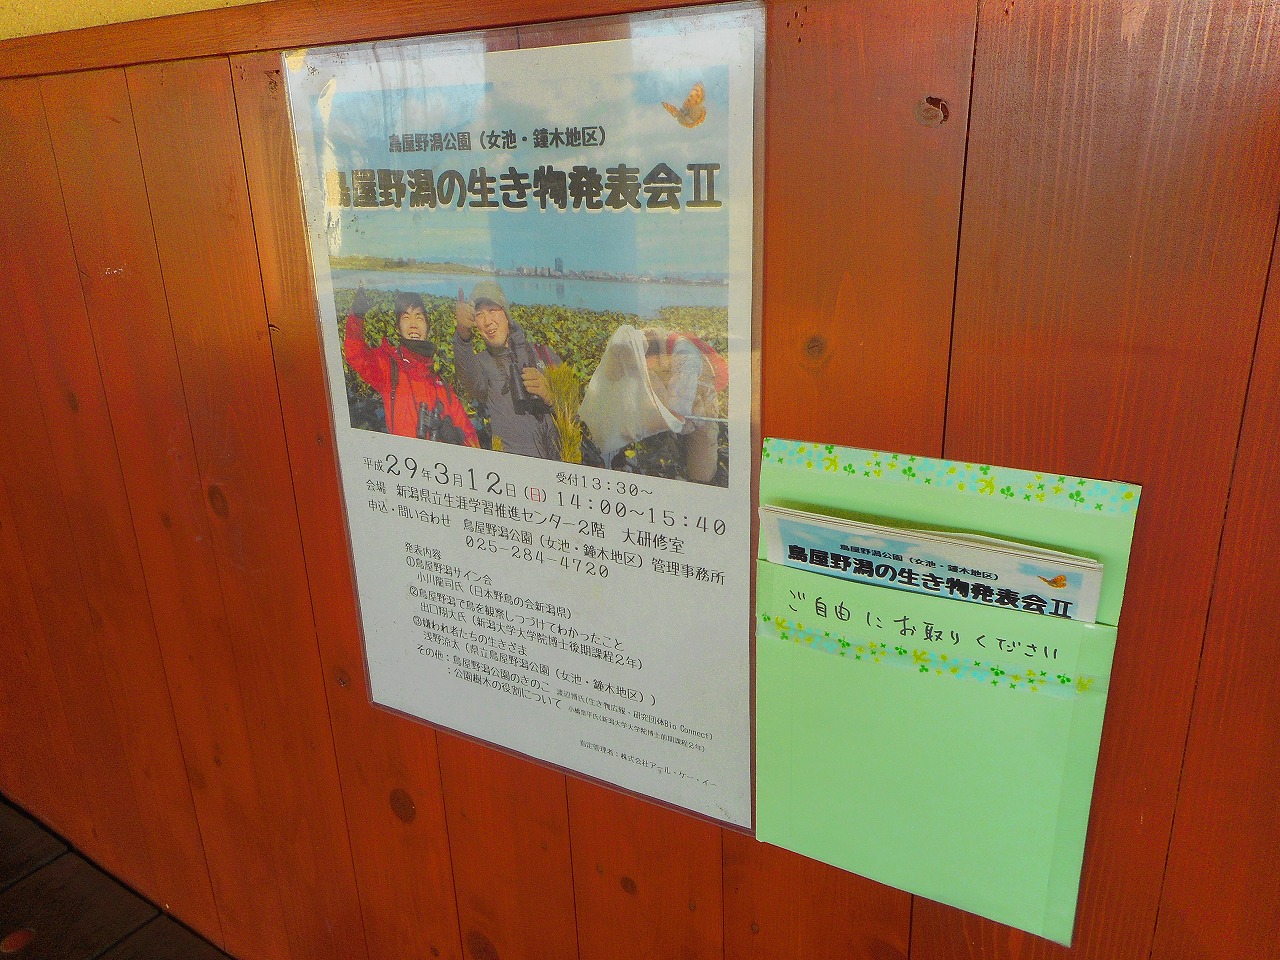 鳥屋野潟公園（女池・鐘木地区）
鳥屋野潟の生き物発表会Ⅱ
平成29年3月12日（日） 受付13:30～
14:00～15:40
会場 新潟県立生涯学習推進センター2階 大研修室
申込・問い合わせ 鳥屋野潟公園（女池・鐘木地区）管理事務所
025-284-4720
発表内容
①鳥屋野潟サイン会
小川龍司氏（日本野鳥の会新潟県）
②鳥屋野潟で鳥を観察しつづけてわかったこと
出口翔大氏（新潟大学大学院博士後期課程2年）
③嫌われ者たちの生きざま
浅野涼太（県立鳥屋野潟公園（女池・鐘木地区））
その他：鳥屋野潟公園のきのこ 渡辺博氏(生き物広報・研究団体Bio Connect)
：公園樹木の役割について (新潟大学大学院博士前期課程2年)
指定管理者：株式会社アール・ケー・イー
鳥屋野潟公園（女池・鐘木地区）
鳥屋野潟の生き物発表会Ⅱ
ご自由にお取りください